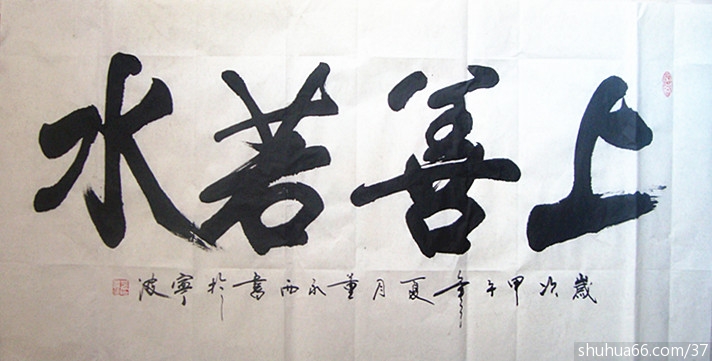 上善若水
歲次甲午年夏月董永西書於寧波
shuhua66.com/37